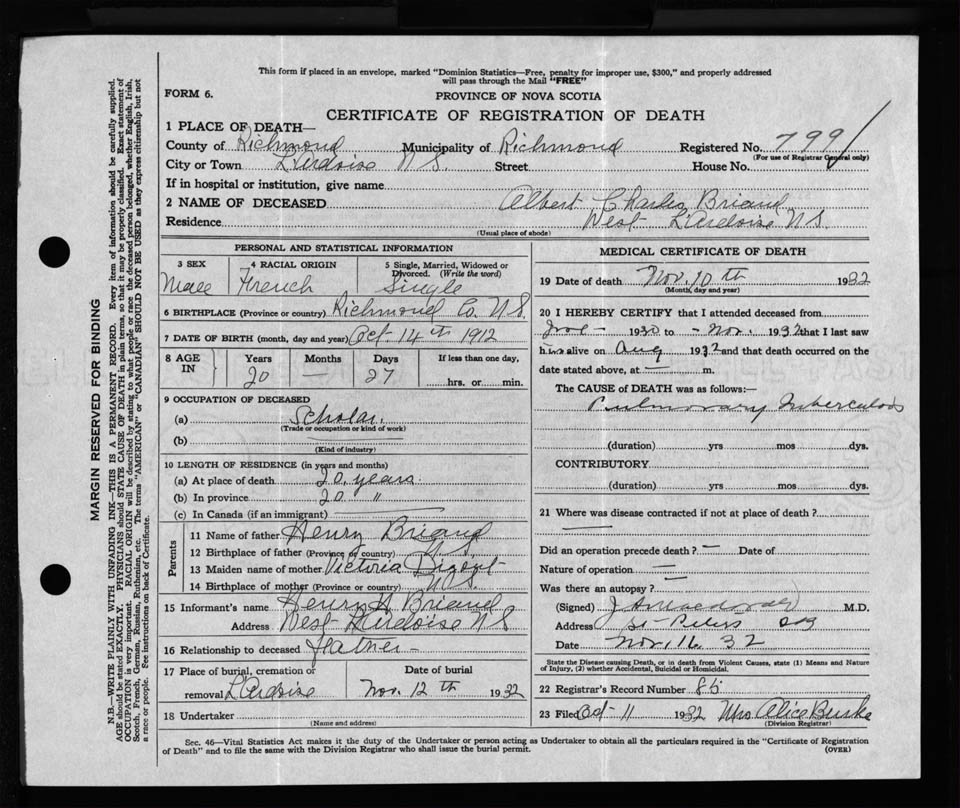 This form if placed in an envelope, marked "Dominion Statistics—Free, penalty for improper use, $300," and properly addressed
will pass through the Mail "FREE"
FORM 6.
PROVINCE OF NOVA SCOTIA
CERTIFICATE OF REGISTRATION OF DEATH
1 PLACE OF DEATH—
County of Richmond Municipality of Richmond Registered No. 799
(For use of Registrar General only)
City or Town L'Ardoise N S. Street House No.
If in hospital or institution, give name
2 NAME OF DECEASED Albert Charles Briand
Residence West L'Ardoise N S.
(Usual place of abode)
PERSONAL AND STATISTICAL INFORMATION
3 SEX 4 RACIAL ORIGIN 5 Single, Married, Widowed or Divorced. (Write the word)
Male French Single
6 BIRTHPLACE (Province or country) Richmond Co. N S.
7 DATE OF BIRTH (month, day and year) Oct. 14th 1912
8 AGE IN Years Months Days If less than one day,
20 — 27 hrs. or min.
9 OCCUPATION OF DECEASED
(a) Scholar.
(Trade or occupation or kind of work)
(b)
(Kind of industry)
10 LENGTH OF RESIDENCE (in years and months)
(a) At place of death 20 years.
(b) In province 20 "
(c) In Canada (if an immigrant)
Parents
11 Name of father Henry Briand
12 Birthplace of father (Province or country) N. S.
13 Maiden name of mother Victoria
14 Birthplace of mother (Province or country) N S.
15 Informant's name Henry Briand
Address West L'Ardoise N S
16 Relationship to deceased father
17 Place of burial, cremation or removal L'Ardoise
Date of burial Nov. 12th 1932
18 Undertaker
(Name and address)
MEDICAL CERTIFICATE OF DEATH
19 Date of death Nov. 10th 1932
(Month, day and year)
20 I HEREBY CERTIFY that I attended deceased from
1930 to Nov. 1932 that I last saw
him alive on Aug 1932 and that death occurred on the
date stated above, at — m.
The CAUSE OF DEATH was as follows:—
Pulmonary Tuberculosis
(duration) yrs mos dys.
CONTRIBUTORY
(duration) yrs mos dys.
21 Where was disease contracted if not at place of death?
Did an operation precede death? — Date of
Nature of operation —
Was there an autopsy? —
(Signed) M.D.
Address St. Peters
Date Nov. 16 32
State the Disease causing Death, or in death from Violent Causes, state (1) Means and Nature
of Injury, (2) whether Accidental, Suicidal or Homicidal.
22 Registrar's Record Number 85
23 Filed Oct 11 1932 Mrs Alice Burke
(Division Registrar)
Sec. 46—Vital Statistics Act makes it the duty of the Undertaker or person acting as Undertaker to obtain all the particulars required in the "Certificate of Registration
of Death" and to file the same with the Division Registrar who shall issue the burial permit.
(OVER)
MARGIN RESERVED FOR BINDING
N.B.—WRITE PLAINLY WITH UNFADING INK—THIS IS A PERMANENT RECORD. Every item of information should be carefully supplied.
AGE should be stated EXACTLY. PHYSICIANS should STATE CAUSE OF DEATH in plain terms, so that it may be properly classified. Exact statement of
OCCUPATION is very important. RACIAL ORIGIN will be described by stating to what people or race the deceased person belonged, whether English, Irish,
Scotch, French, German, Russian, Ruthenian, etc. The terms "AMERICAN" or "CANADIAN" SHOULD NOT BE USED as they express citizenship but not
a race or people. See instructions on back of Certificate.